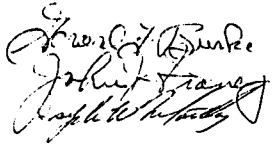 Frank J. Burke
John F. Franey
Joseph W.